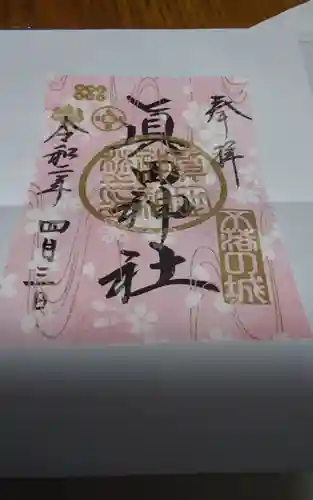 奉拝
眞田神社
不落の城
令和二年
四月三日